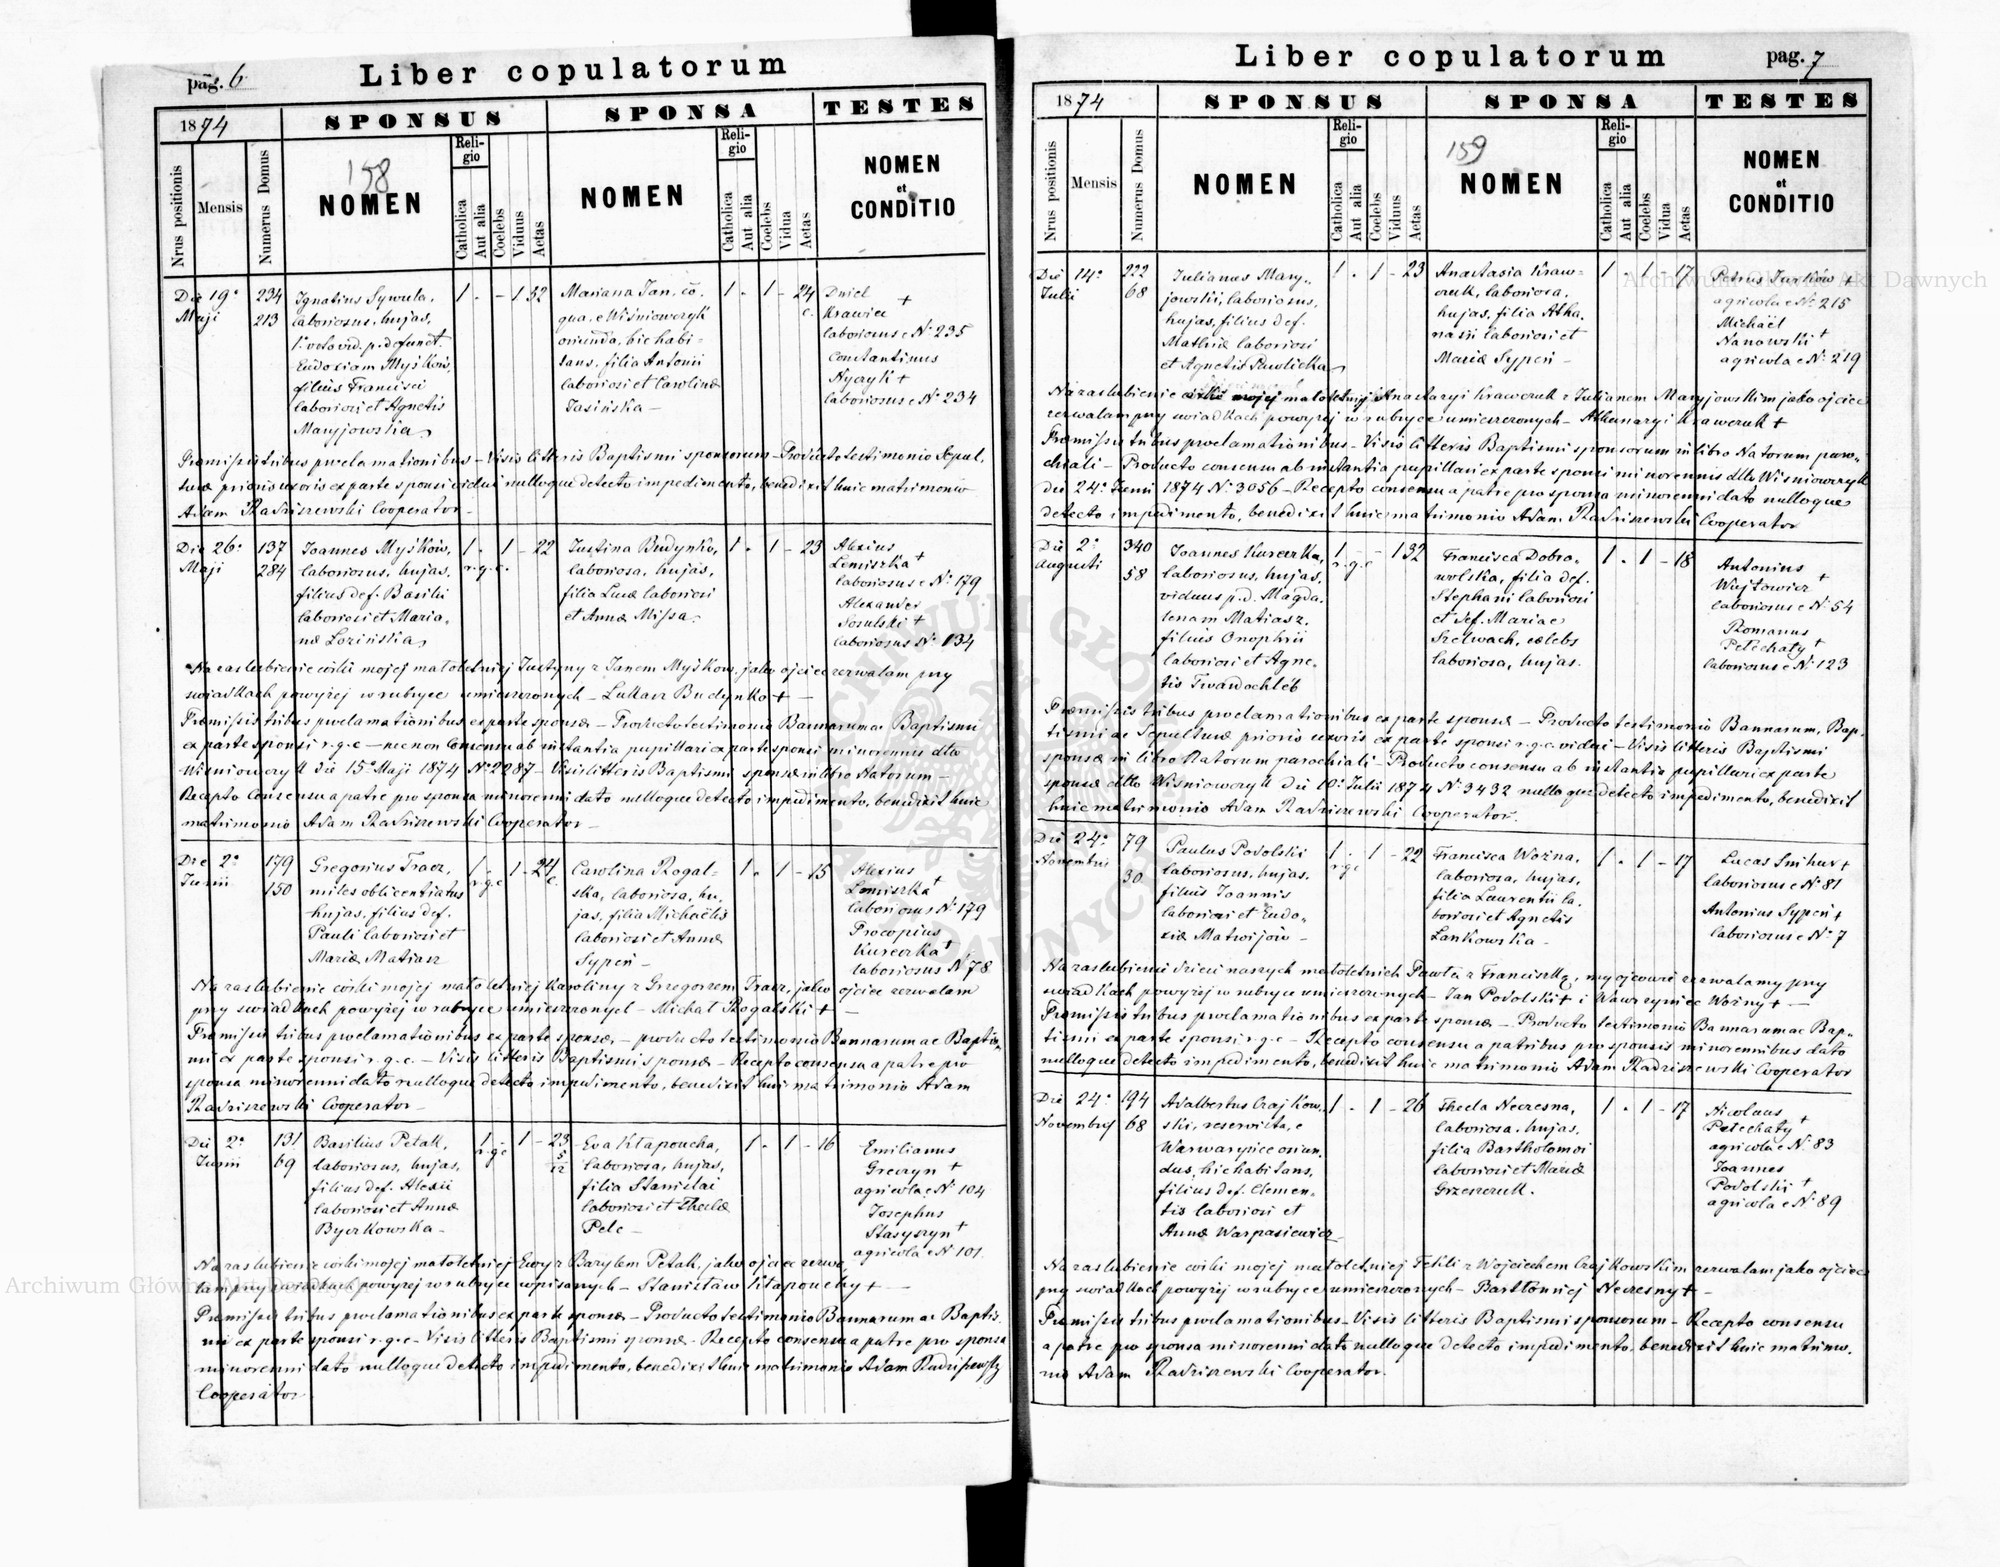 pag. 6
Liber copulatorum
1874
SPONSUS
SPONSA
TESTES
Nrus positionis
Mensis
Numerus Domus
158
NOMEN
Religio
Catholica
Aut alia
Coelebs
Viduus
Aetas
NOMEN
Religio
Catholica
Aut alia
Coelebs
Vidua
Aetas
NOMEN
et
CONDITIO
Die 19a
Maji
234
213
Ignatius Sywula,
laboriosus, hujas,
1o voto vid. p. defunct.
Eudoxiam Myśków,
filius Francisci
laboriosi et Agnetis
Maryjowska
1 . - 1 52
Mariana Jan.
qua, e Wiśniowczyk
oriunda, hic habi-
tans, filia Antonii
laboriosi et Carolinæ
Jasińska -
1 . 1 - 24
Daniel +
Krawiec
laboriosus e No 235
Constantinus
Hyczyk +
laboriosus e No 234
Præmissis tribus proclamationibus - Visis litteris Baptismi sponsorum - Producto testimonio Sepul,
turæ prioris uxoris ex parte sponsi vidui nulloque detecto impedimento, benedixit huic matrimonio
Adam Radziszewski Cooperator -
Die 26a
Maji
137
284
Joannes Myśków,
laboriosus, hujas,
filius def. Basilii
laboriosi et Maria,
næ Lozińska
1 . 1 - 22
r.g.c.
Justina Budynko,
laboriosa, hujas,
filia Lucæ laboriosi
et Annæ Missa
1 . 1 - 23
Alexius
Lemiszka +
laboriosus e No 179
Alexander
Sosulski +
laboriosus No 134
Na zaslubienie córki mojej małoletniej Justyny z Janem Myśków, jako ojciec zezwalam przy
swiadkach powyżej w rubryce umieszczonych - Lukasz Budynko + -
Præmissis tribus proclamationibus ex parte sponsæ - Producto testimonio Bannarum ac Baptismi
ex parte sponsi r.g.c - nec non Consensu ab instantia pupillari ex parte sponsi minorennis dto
Wiśniowczyk die 15a Maji 1874 No 2287 - Visis litteris Baptismi sponsæ in libro Natorum -
Recepto Consensu a patre pro sponsa minorenni dato nulloque detecto impedimento, benedixit huic
matrimonio Adam Radziszewski Cooperator -
Die 2a
Junii
179
150
Gregorius Tracz,
miles oblicentiatus
hujas, filius def.
Pauli laboriosi et
Mariæ Matiasz
1 . 1 - 24
r.g.c
Carolina Rogal-
ska, laboriosa, hu,
jas, filia Michaëlis
laboriosi et Annæ
Sypeń -
1 . 1 - 15
Alexius
Lemiszka +
laboriosus No 179
Procopius
Kureczka +
laboriosus No 78
Na zaslubienie córki mojej małoletniej Karoliny z Grzegorzem Tracz, jako ojciec zezwalam
przy swiadkach powyżej w rubryce umieszczonych - Michał Rogalski + -
Præmissis tribus proclamationibus ex parte sponsæ, - producto testimonio Bannarum ac Baptis,
mi ex parte sponsi r.g.c. - Visis litteris Baptismi sponsæ - Recepto consensu a patre pro
sponsa minorenni dato nulloque detecto impedimento, benedixit huic matrimonio Adam
Radziszewski Cooperator -
Die 2a
Junii
131
69
Basilius Petak,
laboriosus, hujas,
filius def. Alexii
laboriosi et Annæ
Byczkowska -
1 . 1 - 23
r.g.c 5/12
Eva Kłapoucha,
laboriosa, hujas,
filia Stanislai
laboriosi et Theclæ
Pelc -
1 . 1 - 16
Emilianus
Greczyn +
agricola e No 104
Josephus
Stasyszyn +
agricola e No 101.
Na zaslubienie córki mojej małoletniej Ewy z Bazylem Petak, jako ojciec zezwa,
lam przy swiadkach powyżej w rubryce wpisanych - Stanisław Kłapouchy + -
Præmissis tribus proclamationibus ex parte sponsæ - Producto testimonio Bannarum ac Baptis,
mi ex parte sponsi r.g.c - Visis litteris Baptismi sponsæ - Recepto consensu a patre pro sponsa
minorenni dato nulloque detecto impedimento, benedixit huic matrimonio Adam Radziszewski
Cooperator
Liber copulatorum
pag. 7
1874
SPONSUS
SPONSA
TESTES
Nrus positionis
Mensis
Numerus Domus
NOMEN
Religio
Catholica
Aut alia
Coelebs
Viduus
Aetas
159
NOMEN
Religio
Catholica
Aut alia
Coelebs
Vidua
Aetas
NOMEN
et
CONDITIO
Die 14a
Julii
222
68
Julianus Mary,,
jowski, laboriosus,
hujas, filius def.
Mathiæ laboriosi
et Agnetis Pawlicka
1 . 1 - 23
Anastasia Kraw-
czuk, laboriosa,
hujas, filia Atha,
nasii laboriosi et
Mariæ Sypeń -
1 . 1 - 17
Petrus Jurków +
agricola e No 215
Michaël
Nanowski +
agricola e No 219
Na zaslubienie małoletniej Anastazyi Krawczuk z Julianem Maryjowskim jako ojciec
zezwalam przy swiadkach powyżej w rubryce umieszczonych - Athanazyi Krawczuk +
Præmissis tribus proclamationibus - Visis litteris Baptismi sponsorum in libro Natorum paro,,
chiali - Producto consensu ab instantia pupillari ex parte sponsi minorennis dto Wiśniowczyk
die 24a Junii 1874 No 3056 - Recepto consensu a patre pro sponsa minorenni dato nulloque
detecto impedimento, benedixit huic matrimonio Adam Radziszewski Cooperator
Die 2a
augusti
340
58
Joannes Kureczka,
laboriosus, hujas,
viduus p.d. Magda,
lenam Matiasz,
filius Onophrii
laboriosi et Agne,
tis Twardochleb
1 - - 1 32
r.g.c
Francisca Dobro,
wolska, filia def.
Stephani laboriosi
et def. Mariae
Szelwach, cœlebs
laboriosa, hujas.
1 . 1 - 18
Antonius
Wujtowicz +
laboriosus e No 54
Romanus
Pełechaty +
laboriosus e No 123
Præmissis tribus proclamationibus ex parte sponsæ - Producto testimonio Bannarum, Bap,
tismi ac Sepulturæ prioris uxoris ex parte sponsi r.g.c. vidui - Visis litteris Baptismi
sponsæ in libro Natorum parochiali - Producto consensu ab instantia pupillari ex parte
sponsæ dto Wiśniowczyk die 10a Julii 1874 No 3432 nulloque detecto impedimento, benedixit
huic matrimonio Adam Radziszewski Cooperator.
Die 24a
Novembris
79
30
Paulus Podolski
laboriosus, hujas,
filius Joannis
laboriosi et Eudo,,
xiæ Matwijów -
1 . 1 - 22
r.g.c
Francisca Woźna,
laboriosa, hujas,
filia Laurentii la,
boriosi et Agnetis
Lankowska -
1 . 1 - 17
Lucas Snihur +
laboriosus e No 81
Antonius Sypeń +
laboriosus e No 7
Na zaslubienie dzieci naszych małoletnich Pawła z Franciszką, my ojcowie zezwalamy przy
swiadkach powyżej w rubryce umieszczonych - Jan Podolski + i Wawrzyniec Woźny + -
Præmissis tribus proclamationibus ex parte sponsæ - Producto testimonio Bannarum ac Bap,,
tismi ex parte sponsi r.g.c - Recepto consensu a patribus pro sponsis minorennibus dato
nulloque detecto impedimento, benedixit huic matrimonio Adam Radziszewski Cooperator
Die 24a
Novembris
194
68
Adalbertus Czajkow,
ski, reservista, e
Warwaryńce oriun,
dus, hic habitans,
filius def. Clemen,
tis laboriosi et
Annæ Warpasiewicz
1 . 1 - 26
Thecla Neczesna,
laboriosa, hujas,
filia Bartholomæi
laboriosi et Mariæ
Grzeszczuk.
1 . 1 - 17
Nicolaus
Pełechaty +
agricola e No 83
Joannes
Podolski +
agricola e No 89
Na zaslubienie córki mojej małoletniej Tekli z Wojciechem Czajkowskim zezwalam jako ojciec
przy swiadkach powyżej w rubryce umieszczonych - Bartłomiej Neczesny + -
Præmissis tribus proclamationibus - Visis litteris Baptismi sponsorum - Recepto consensu
a patre pro sponsa minorenni dato nulloque detecto impedimento, benedixit huic matrimo,
nio Adam Radziszewski Cooperator.
Archiwum Główne Akt Dawnych
Archiwum Główne Akt Dawnych
ARCHIWUM GŁÓWNE AKT DAWNYCH